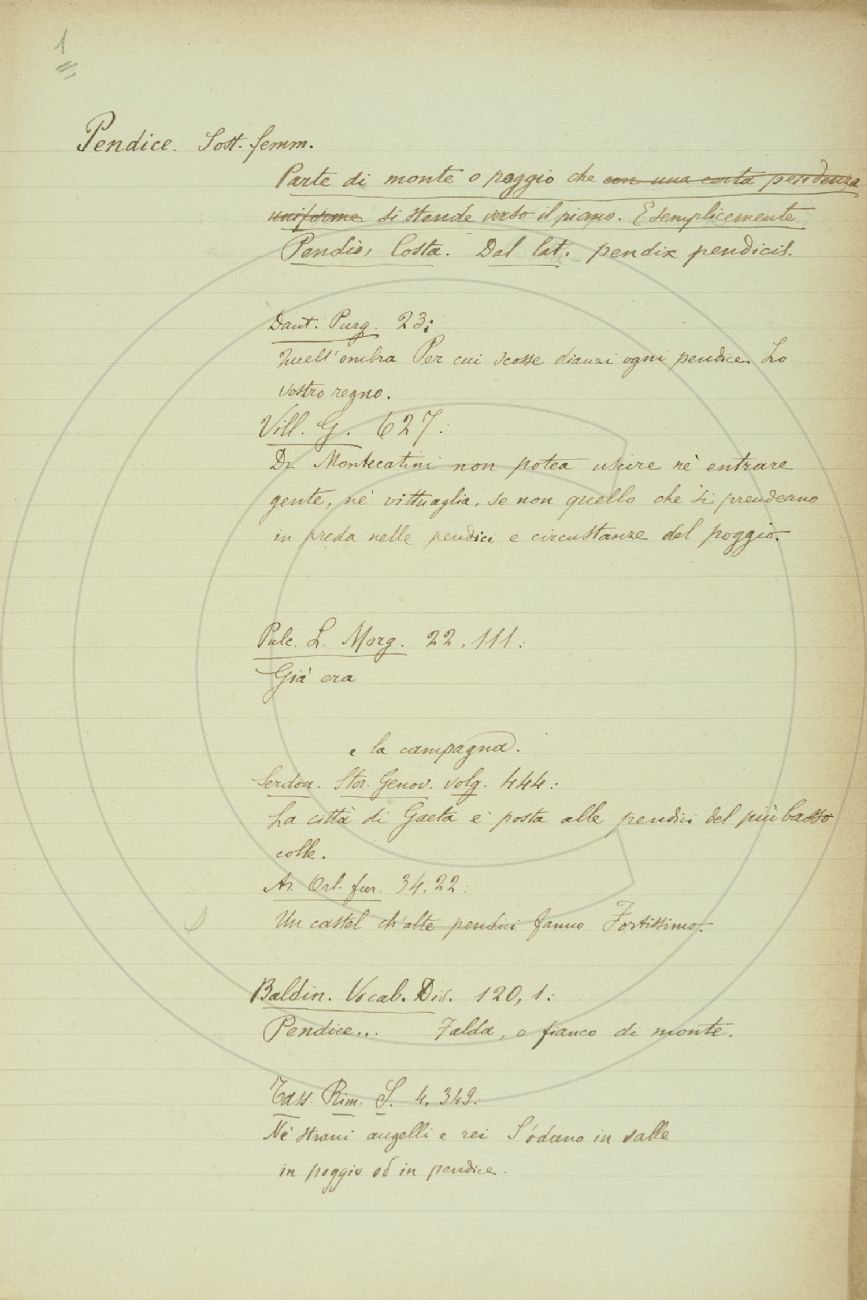 1
Pendice. Sost. femm.
Parte di monte o poggio che con una certa pendenza
uniforme si stende verso il piano. E semplicemente
Pendio, Costa. Dal lat. pendix pendicis.
Dant. Purg. 23:
Quell'ombra Per cui scosse dianzi ogni pendice Lo
vostro regno.
Vill. G. 627:
Di Montecatini non potea uscire nè entrare
gente, nè vittuaglia, se non quello che si prendeano
in preda nelle pendici e circustanze del poggio.
Pulc. L. Morg. 22, 111:
Già era
e la campagna.
Serdon. Stor. Genov. volg. 444:
La città di Gaeta è posta alle pendici del più basso
colle.
Ar. Orl. fur. 34, 22:
Un castel ch'alte pendici fanno Fortissimo.
Baldin. Vocab. Dis. 120, 1:
Pendice... Falda, o fianco di monte.
Tass. Rim. S. 4. 349.
Nè strani augelli e rei S'odano in valle
in poggio od in pendice.